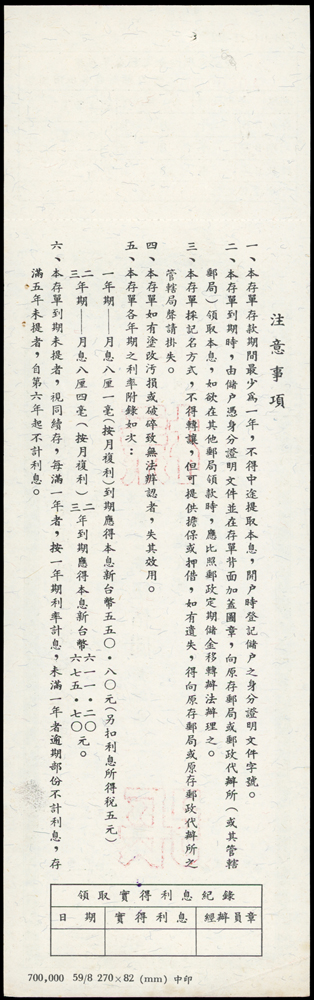 注意事項
一、本存單存款期間最少為一年，不得中途提取本息，開戶時登記儲戶之身分證明文件字號。
二、本存單到期時，由儲戶憑身分證明文件並在存單背面加蓋圖章，向原存郵局或郵政代辦所（或其管轄
郵局）領取本息，如欲在其他郵局領款時，應比照郵政定期儲金移轉辦法辦理之。
三、本存單採記名方式，不得轉讓，但可提供擔保或押借，如有遺失，得向原存郵局或原存郵政代辦所之
管轄局聲請掛失。
四、本存單如有塗改污損或破碎致無法辨認者，失其效用。
五、本存單各年期之利率附錄如次：
一年期——月息八厘一毫（按月複利）到期應得本息新台幣五五〇•八〇元（另扣利息所得稅五元）
二年期——月息八厘四毫（按月複利）二年到期應得本息新台幣六一一•二〇元。
三年期——月息八厘四毫（按月複利）三年到期應得本息新台幣六七五•七〇元。
六、本存單到期未提者，視同續存，每滿一年者，按一年期利率計息，未滿一年者逾期部份不計利息，存
滿五年未提者，自第六年起不計利息。
領取實得利息紀錄
日期 實得利息 經辦員章
700,000 59/8 270×82 (mm) 中印